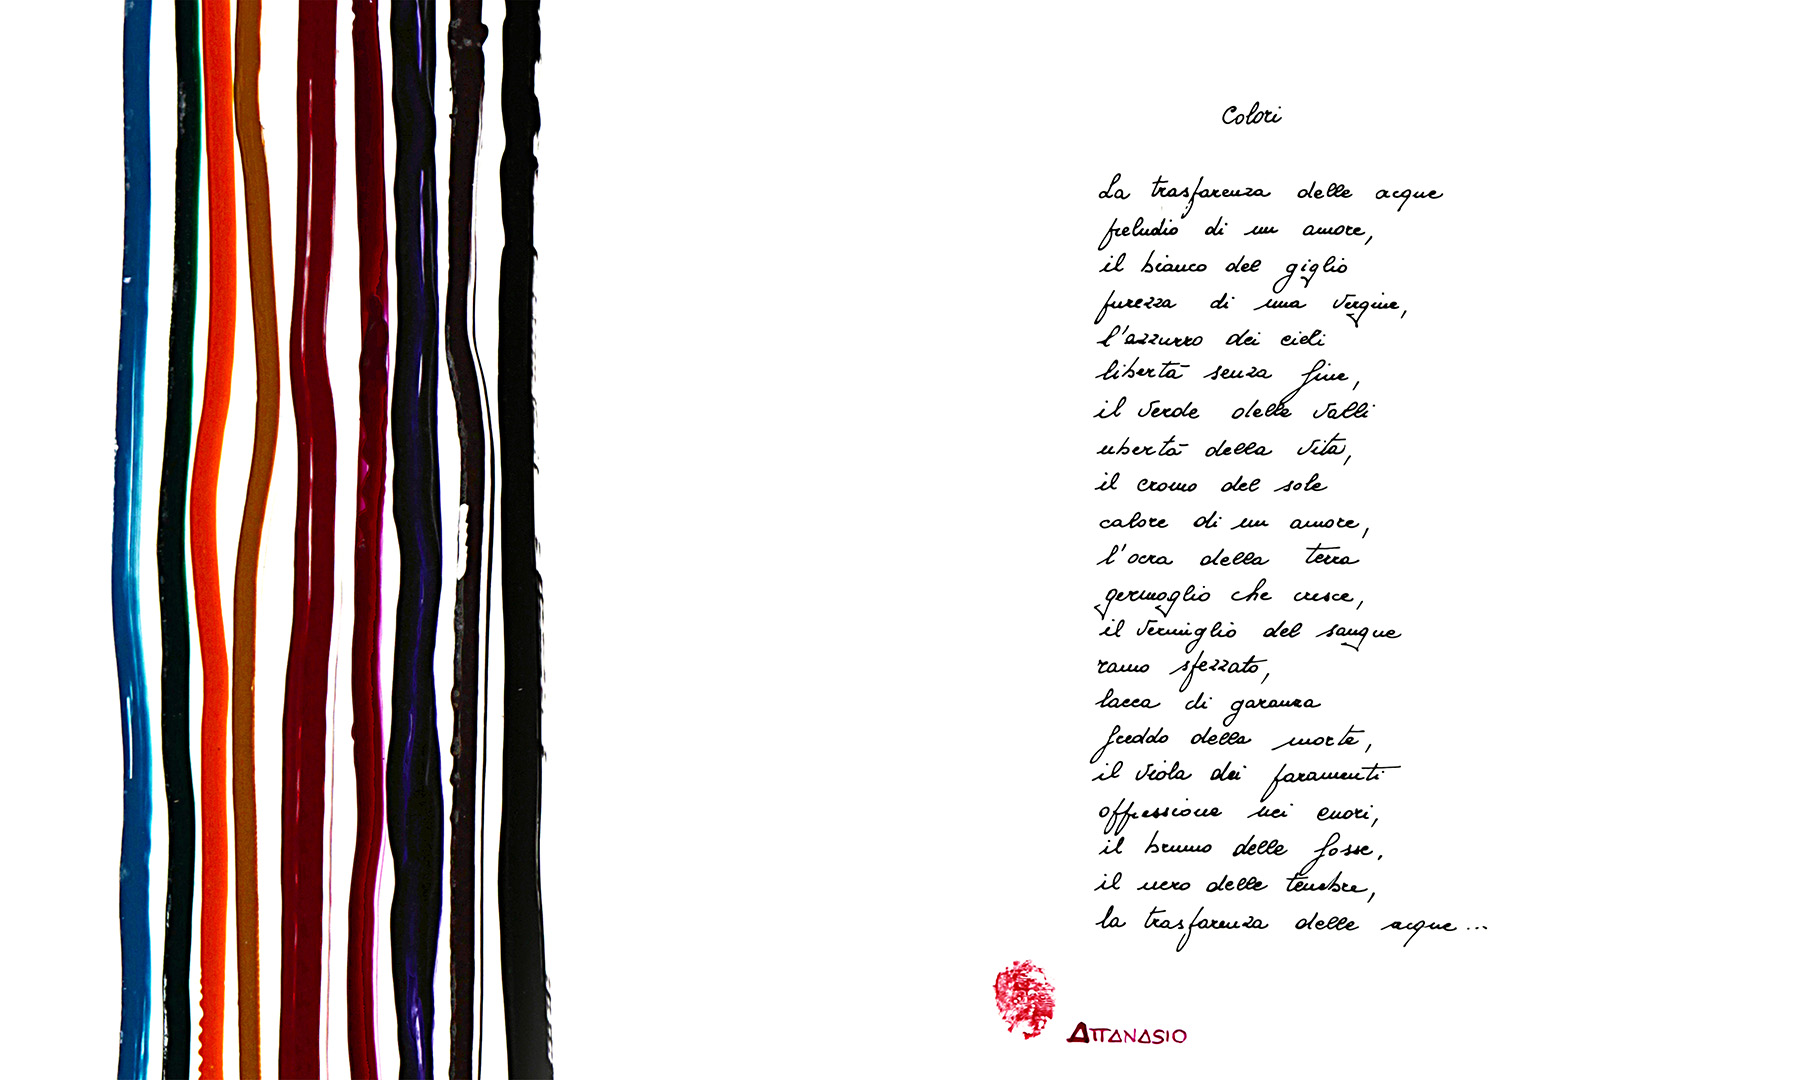 Colori
La trasparenza delle acque
preludio di un amore,
il bianco del giglio
purezza di una vergine,
l'azzurro dei cieli
libertà senza fine,
il verde delle valli
ubertà della vita,
il cromo del sole
calore di un amore,
l'ocra della terra
germoglio che cresce,
il vermiglio del sangue
ramo spezzato,
lacca di garanza
freddo della morte,
il viola dei paramenti
oppressione nei cuori,
il bruno delle fosse,
il nero delle tenebre,
la trasparenza delle acque...
ATTANASIO